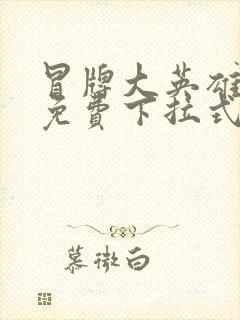 冒牌大英雄
免费下拉式
慕微白